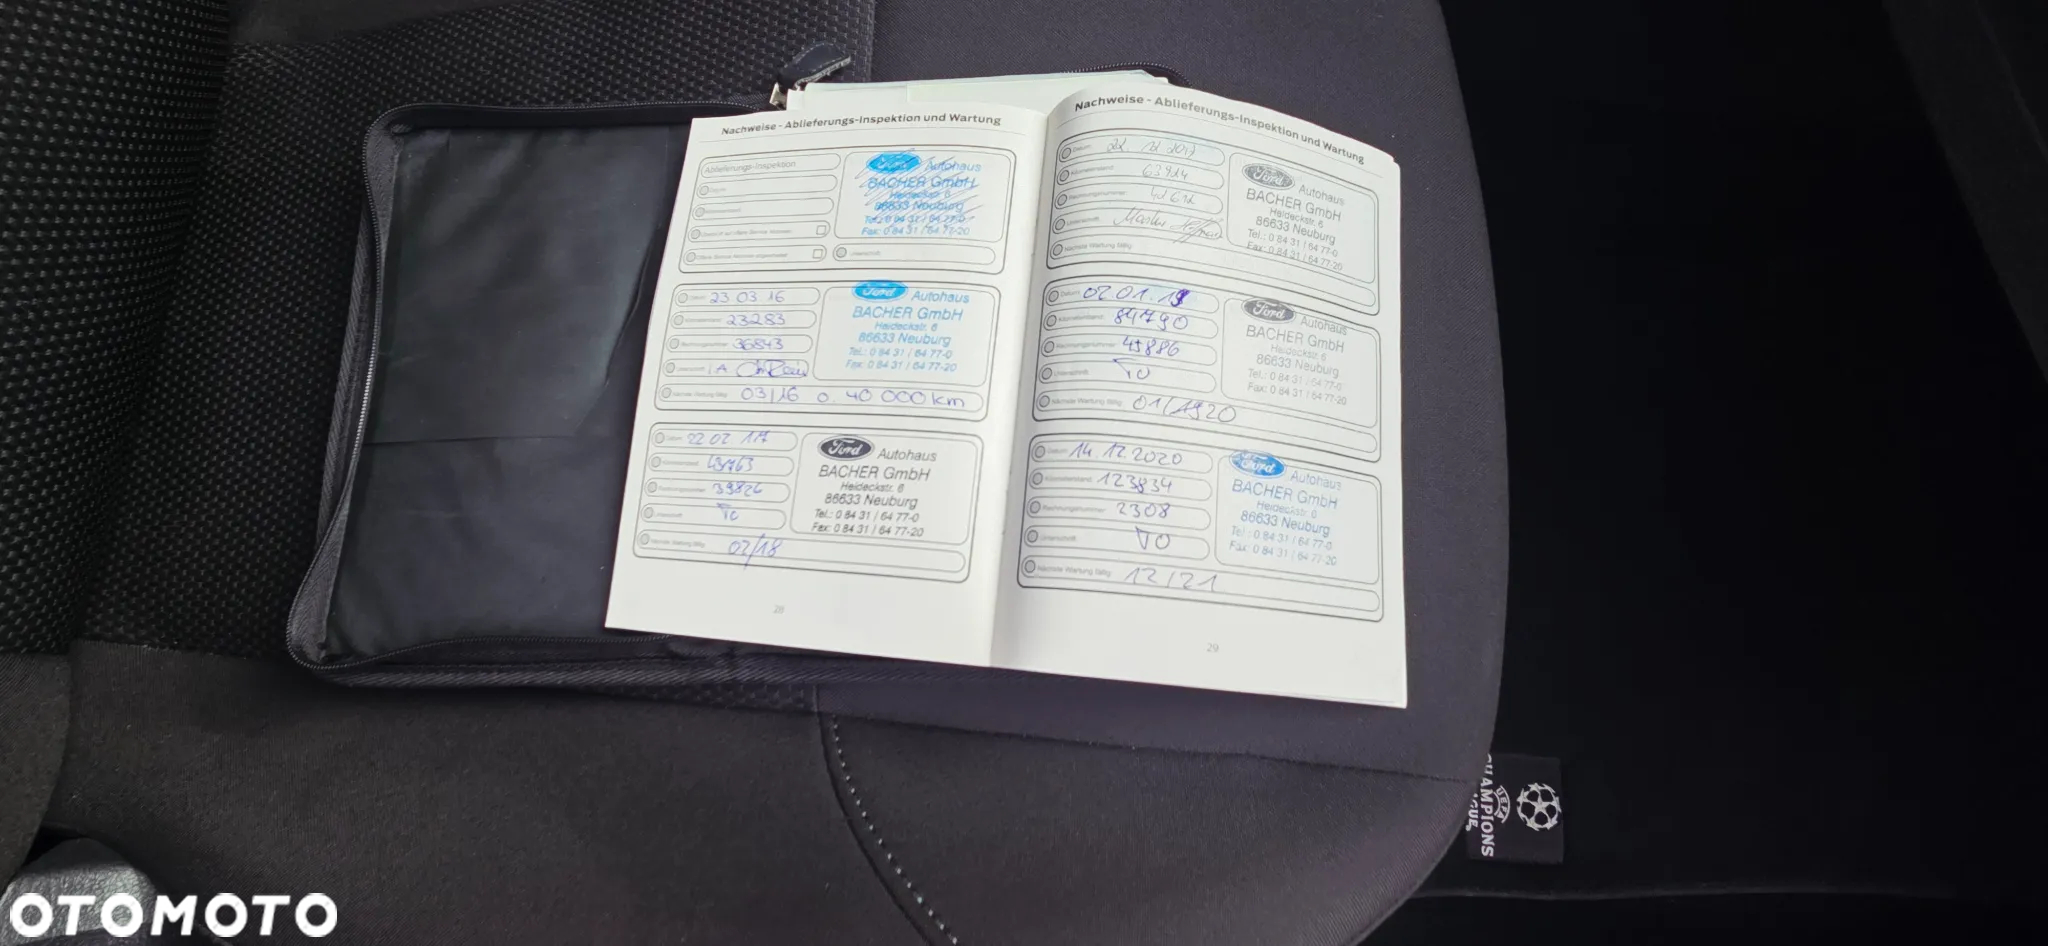 Nachweise - Ablieferungs-Inspektion und Wartung
Ablieferungs-Inspektion
Ford Autohaus
BACHER GmbH
Heideckstr. 6
86633 Neuburg
Tel.: 0 84 31 / 64 77-0
Fax: 0 84 31 / 64 77-20
Unterschrift
Datum 23 03. 16
Kilometerstand 23283
Rechnungsnummer 36843
Unterschrift
Nächste Wartung fällig 03/16 o. 40 000 km
Ford Autohaus
BACHER GmbH
Heideckstr. 6
86633 Neuburg
Tel.: 0 84 31 / 64 77-0
Fax: 0 84 31 / 64 77-20
Datum 22 02. 17
Kilometerstand
Rechnungsnummer 39826
Unterschrift
Nächste Wartung fällig 02/18
Ford Autohaus
BACHER GmbH
Heideckstr. 6
86633 Neuburg
Tel.: 0 84 31 / 64 77-0
Fax: 0 84 31 / 64 77-20
28
Nachweise - Ablieferungs-Inspektion und Wartung
Datum 22. 12 2017
Kilometerstand 63914
Rechnungsnummer
Unterschrift
Nächste Wartung fällig
Ford Autohaus
BACHER GmbH
Heideckstr. 6
86633 Neuburg
Tel.: 0 84 31 / 64 77-0
Fax: 0 84 31 / 64 77-20
Datum 02 01. 19
Kilometerstand 84790
Rechnungsnummer 45886
Unterschrift
Nächste Wartung fällig 01/1920
Ford Autohaus
BACHER GmbH
Heideckstr. 6
86633 Neuburg
Tel.: 0 84 31 / 64 77-0
Fax: 0 84 31 / 64 77-20
Datum 14. 12. 2020
Kilometerstand 123834
Rechnungsnummer 2308
Unterschrift
Nächste Wartung fällig 12/21
Ford Autohaus
BACHER GmbH
Heideckstr. 6
86633 Neuburg
Tel.: 0 84 31 / 64 77-0
Fax: 0 84 31 / 64 77-20
29
UEFA
CHAMPIONS
LEAGUE
OTOMOTO